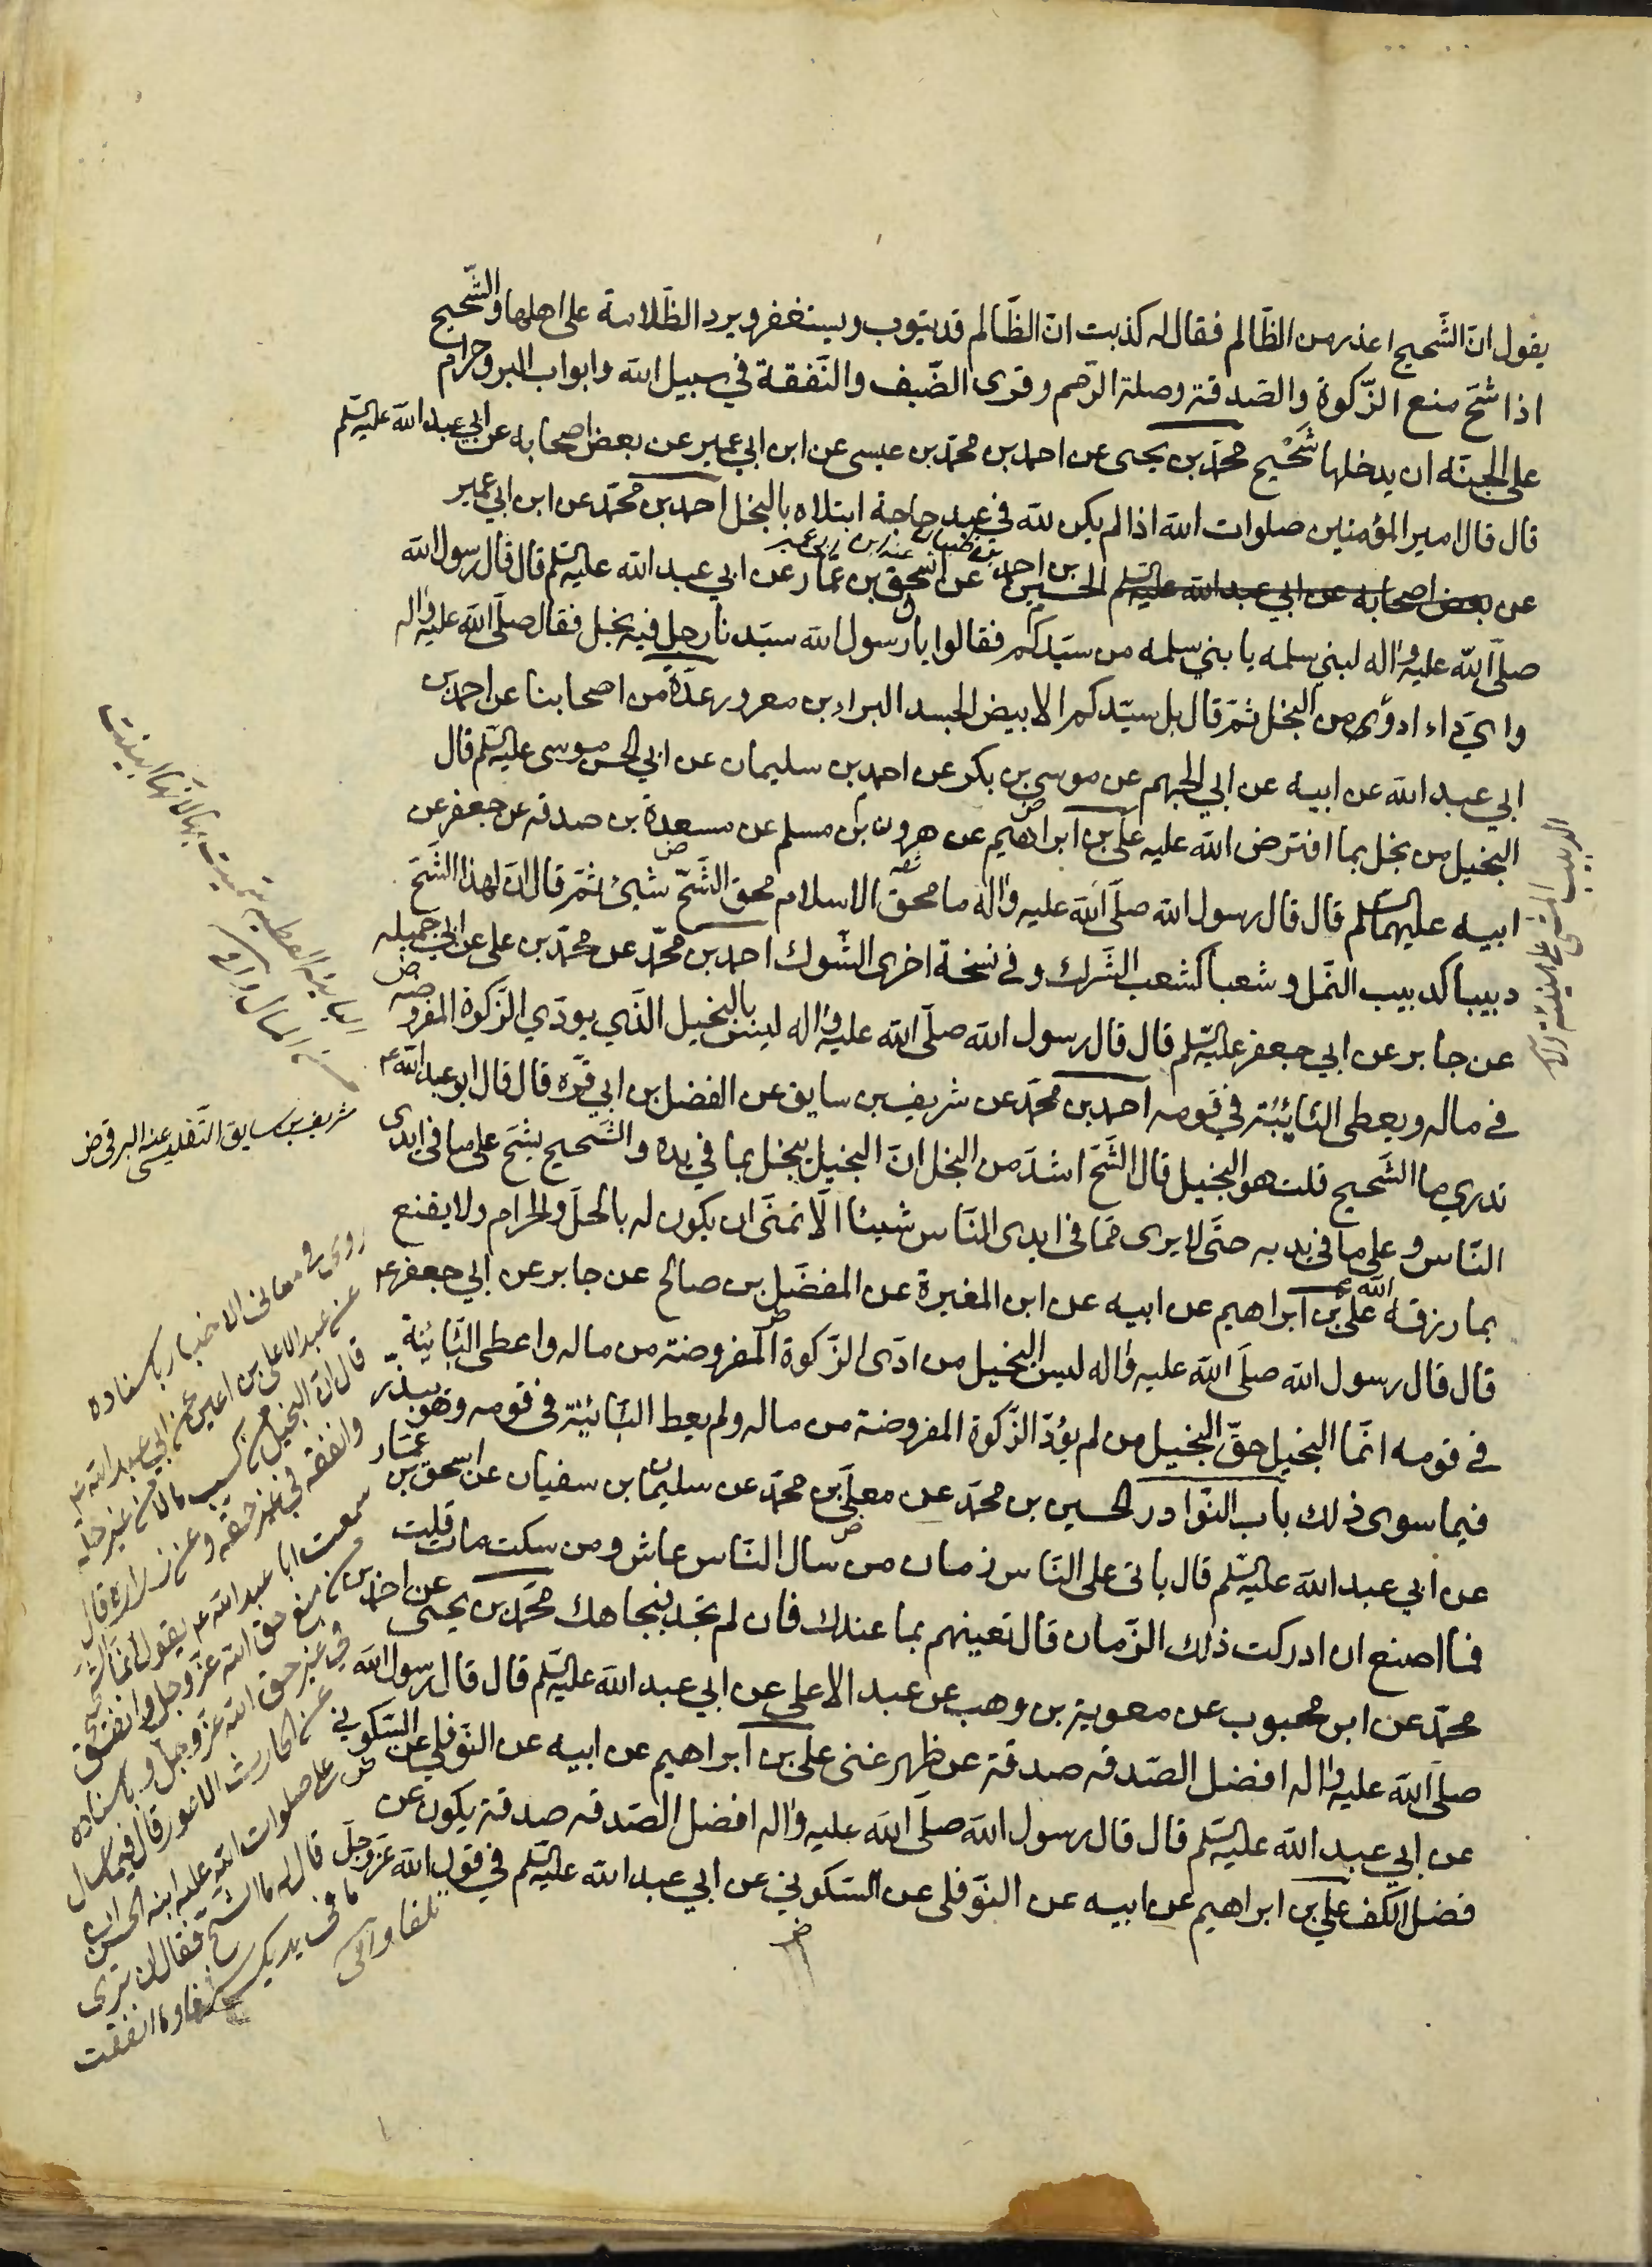 يقول ان الشَّحيح اعذر من الظَّالم فقال له كذبت انّ الظَّالم قد يتوب ويستغفر ويرد الظّلامة على اهلها والشَّحيح
اذا شحّ منع الزّكوة والصّدقة وصلة الرّحم وقرى الضّيف والنّفقة في سبيل الله وابواب البر وحرام
على الجنّة ان يدخلها شحيح محمّد بن يحيى عن احمد بن محمّد بن عيسى عن ابن ابي عمير عن بعض اصحابه عن ابي عبد الله عليه السّلم
قال قال امير المؤمنين صلوات الله اذا لم يكن لله في عبد حاجة ابتلاه بالبخل احمد بن محمّد عن ابن ابي عمير
عن بعض اصحابه عن ابي عبد الله عليه السّلم الحسين بن احمد عن اسحق بن عمّار عن ابي عبد الله عليه السّلم قال قال رسول الله
صلّى الله عليه واله لبني سلمه يا بني سلمه من سيّدكم فقالوا يا رسول الله سيّدنا رجل فيه بخل فقال صلّى الله عليه واله
واي داء ادوى من البخل ثمّ قال بل سيّدكم الابيض الجسد البراء بن معرور عدّة من اصحابنا عن احمد بن
ابي عبد الله عن ابيه عن ابي الجهم عن موسى بن بكر عن احمد بن سليمان عن ابي الحسن موسى عليه السّلم قال
البخيل من بخل بما افترض الله عليه علي بن ابراهيم عن هرون بن مسلم عن مسعدة بن صدقه عن جعفر عن
ابيه عليهما السّلم قال قال رسول الله صلّى الله عليه واله ما محق الاسلام محق الشّحّ شيئ ثمّ قال ان لهذا الشّحّ
دبيبا كدبيب النّمل وشعبا كشعب الشّرك وفي نسخة اخرى الشّوك احمد بن محمّد عن محمّد بن علي عن ابي جميله
عن جابر عن ابي جعفر عليه السّلم قال قال رسول الله صلّى الله عليه واله ليس بالبخيل الّذي يودّي الزّكوة المفروضه
في ماله ويعطى النّائبة في قومه احمد بن محمّد عن شريف بن سابق عن الفضل بن ابي قرّه قال قال ابو عبد الله ع
تدري ما الشّحيح قلت هو البخيل قال الشّحّ اشدّ من البخل انّ البخيل يبخل بما في يده والشّحيح يشحّ على ما في ايدى
النّاس وعلى ما في يديه حتّى لا يرى ممّا في ايدى النّاس شيئا الّا تمنّى ان يكون له بالحلّ والحرام ولا يقنع
بما رزقه الله علي بن ابراهيم عن ابيه عن ابن المغيرة عن المفضّل بن صالح عن جابر عن ابي جعفر ع
قال قال رسول الله صلّى الله عليه واله ليس البخيل من ادّى الزّكوة المفروضة من ماله واعطى النّائبة
في قومه انّما البخيل حقّ البخيل من لم يؤدّ الزّكوة المفروضة من ماله ولم يعط النّائبة في قومه وهو يبذّر
فيما سوى ذلك باب النّوادر الحسين بن محمّد عن معلّى بن محمّد عن سليمان بن سفيان عن اسحق بن عمّار
عن ابي عبد الله عليه السّلم قال ياتى على النّاس زمان من سال النّاس عاش ومن سكت مات قلت
فما اصنع ان ادركت ذلك الزّمان قال تعينهم بما عندك فان لم تجد فبجاهك محمّد بن يحيى عن احمد بن
محمّد عن ابن محبوب عن معوية بن وهب عن عبد الاعلى عن ابي عبد الله عليه السّلم قال قال رسول الله
صلّى الله عليه واله افضل الصّدقه صدقة عن ظهر غنى علي بن ابراهيم عن ابيه عن النّوفلي عن السّكوني
عن ابي عبد الله عليه السّلم قال قال رسول الله صلّى الله عليه واله افضل الصّدقه صدقة يكون عن
فضل الكف علي بن ابراهيم عن ابيه عن النّوفلى عن السّكوني عن ابي عبد الله عليه السّلم في قول الله عزّ وجلّ
شريف بن سابق التفليسى عنه البرقى ض
روى في معانى الاخبار باسناده
عن عبد الاعلى بن اعين عن ابي عبد الله ع
قال ان البخيل من كسب مالا من غير حله
وانفقه في غير حقه وعن زراره قال
سمعت ابا عبد الله ع يقول انما الشحيح
من منع حق الله عز وجل وانفق
في غير حق الله عز وجل وباسناده
عن الحارث الاعور قال فيما سال
على صلوات الله عليه ابنه الحسن ان
قال له ما الشح فقال ان ترى
ما في يديك شرفا وما انفقت
تلفا